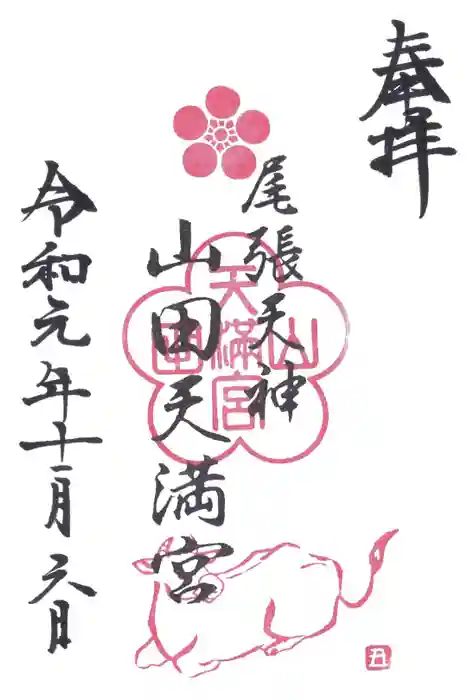 奉拝
尾張天神
山田天満宮
令和元年十一月六日
山田天滿宮
丑